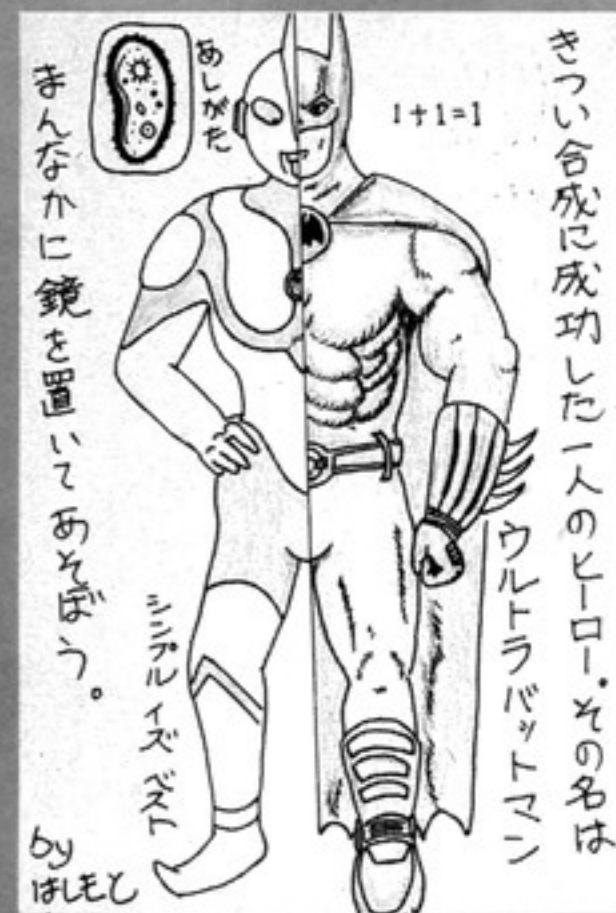 きつい合成に成功した一人のヒーロー。その名は
ウルトラバットマン
1+1=1
あしがた
まんなかに鏡を置いてあそぼう。
シンプル イズ ベスト
by
はしもと